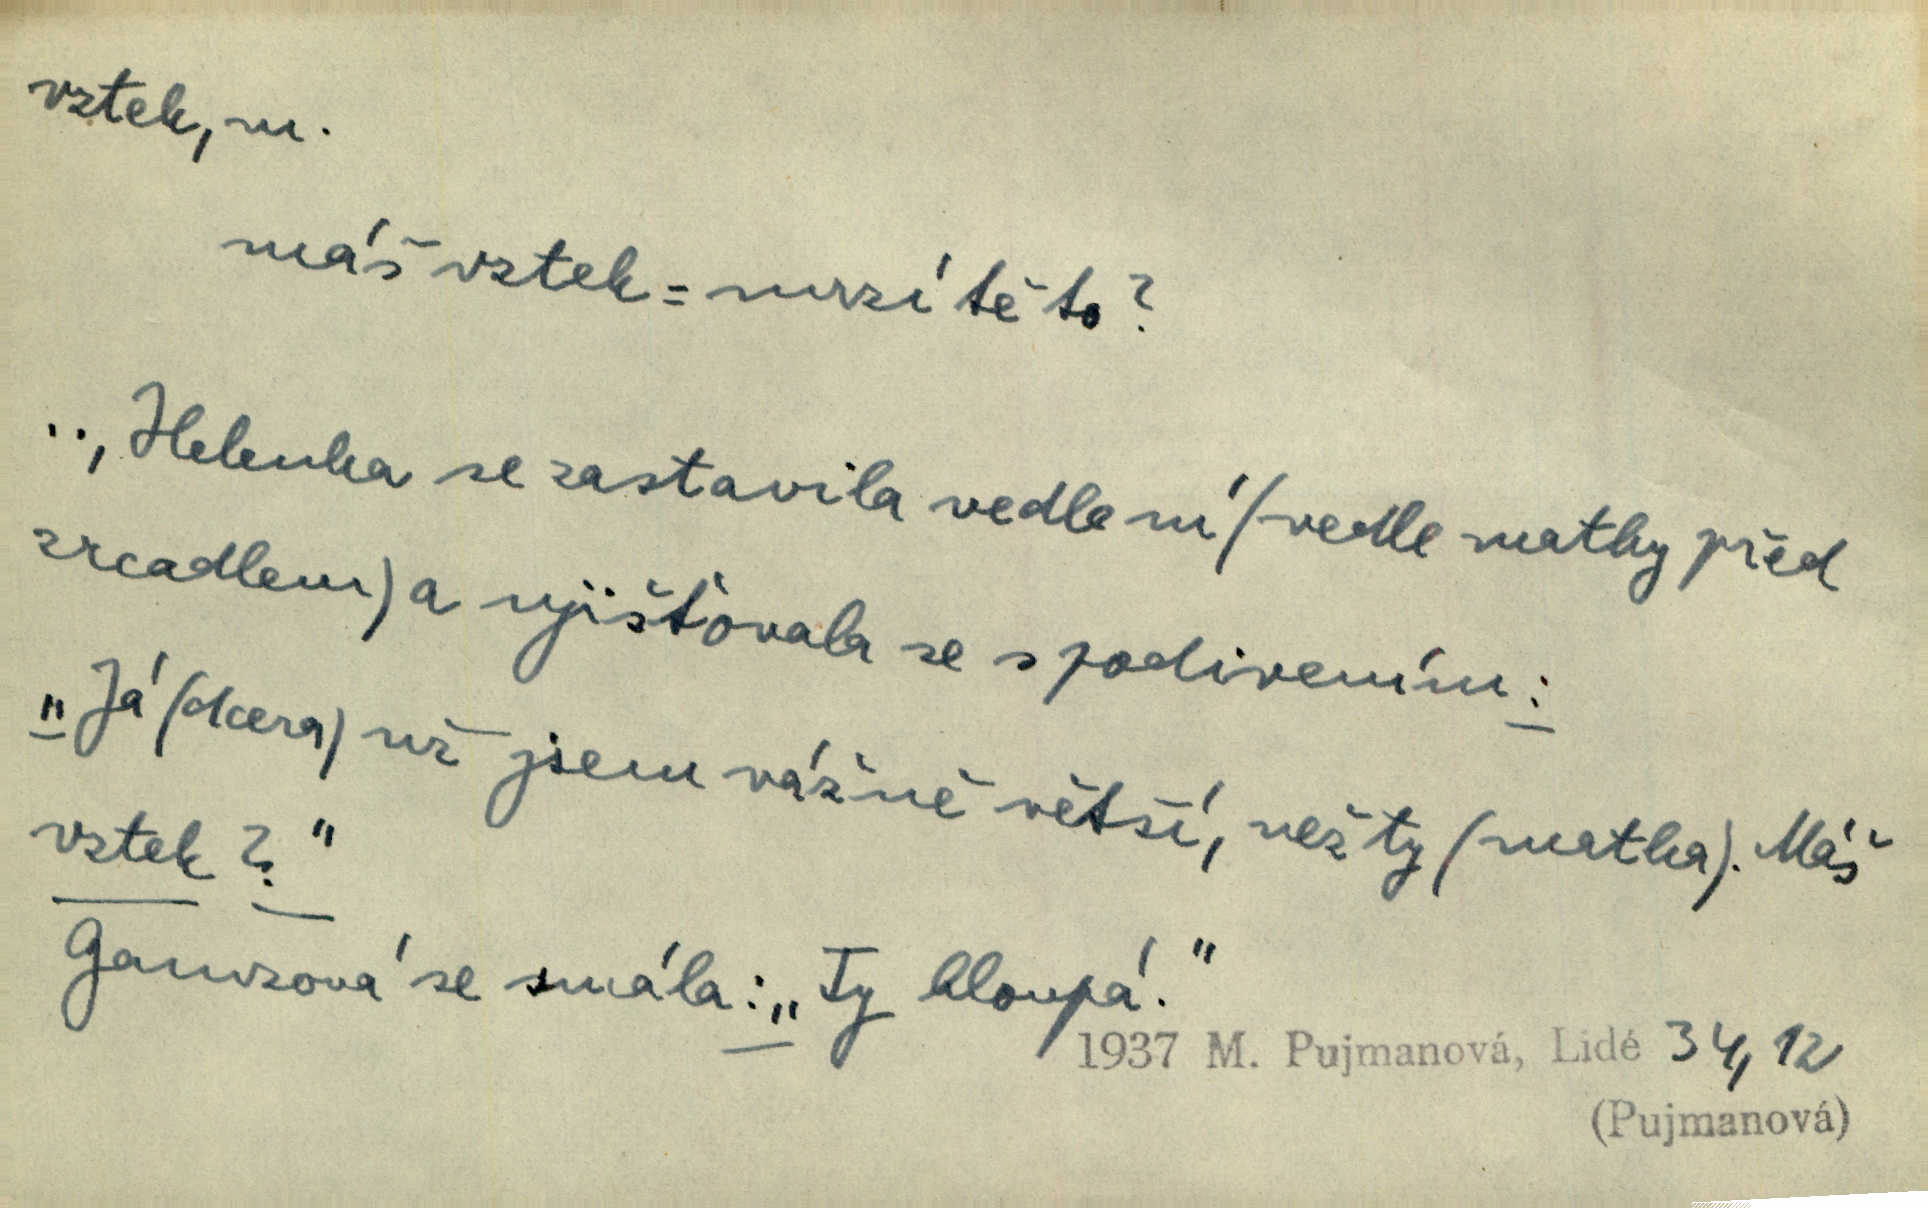 vztek, m.
máš vztek = mrzí tě to?
.., Helenka se zastavila vedle ní (vedle matky před
zrcadlem) a ujišťovala se s podivením:
„Já (dcera) už jsem vážně větší, než ty (matka). Máš
vztek?"
Gamzová se smála: „Ty hloupá."
1937 M. Pujmanová, Lidé 34, 12
(Pujmanová)